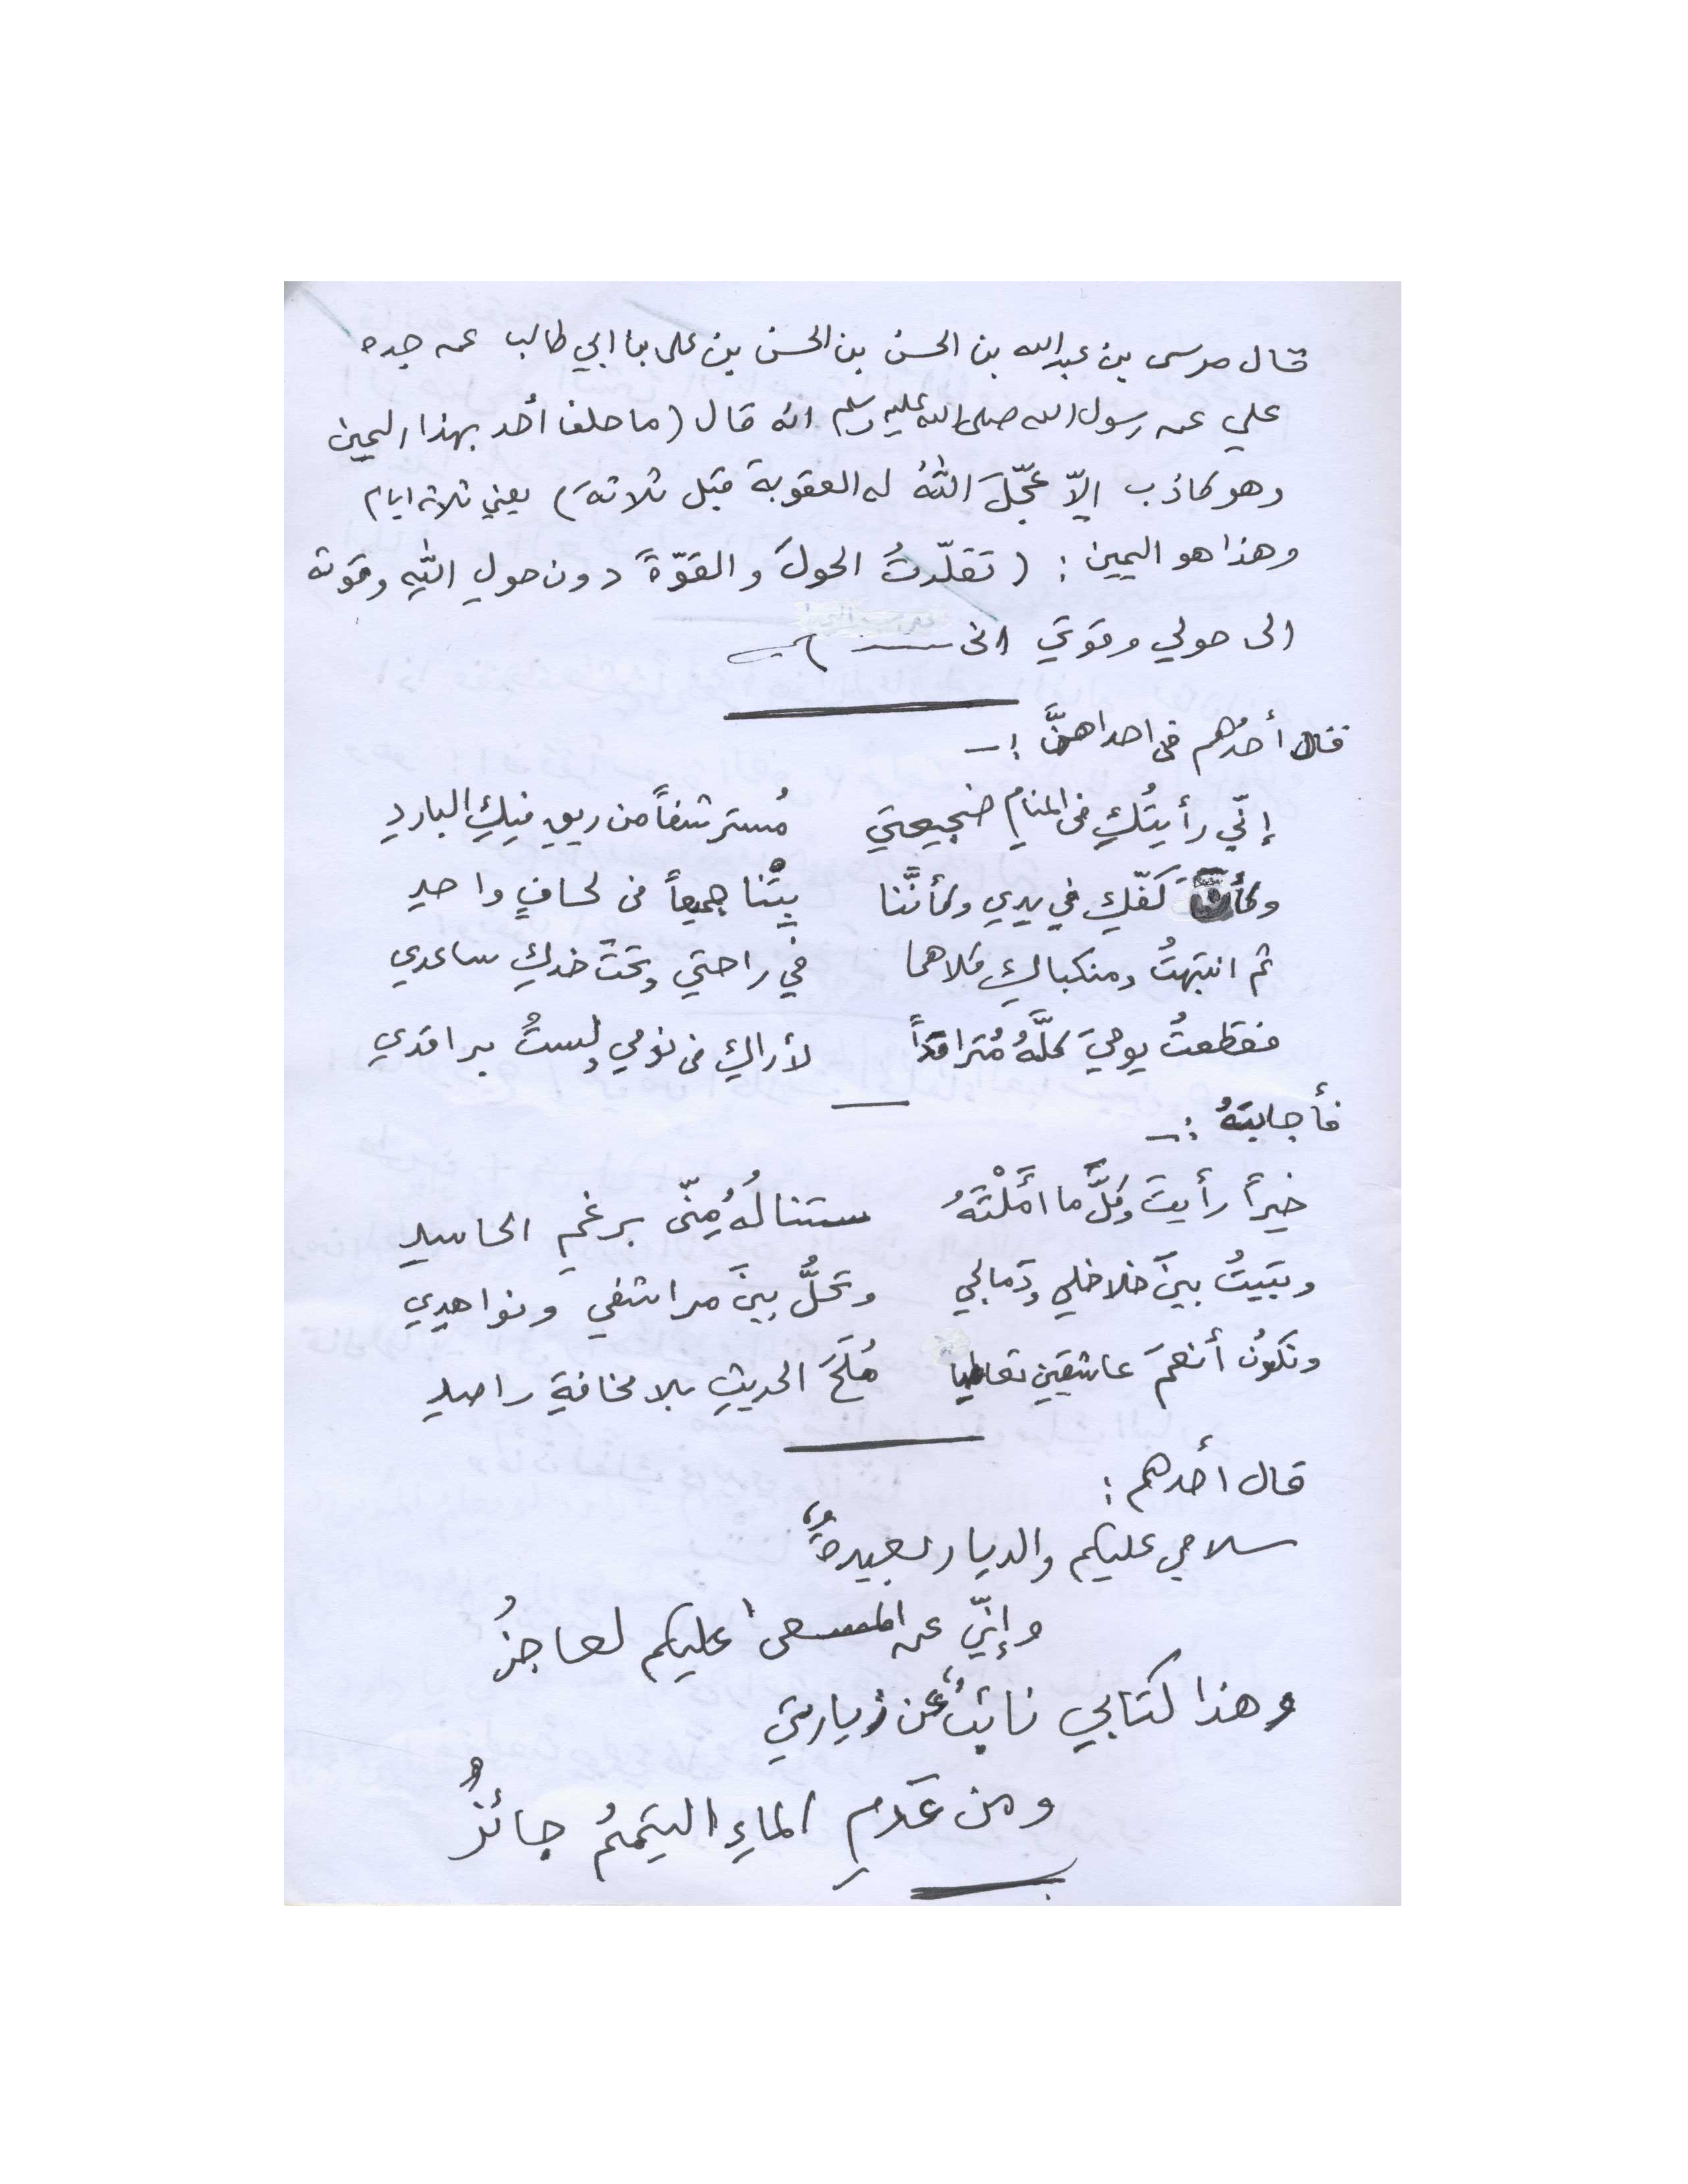 قال موسى بن عبدالله بن الحسن بن الحسن بن علي بن ابي طالب عن جده
علي عن رسول الله صلى الله عليه وسلم انه قال (ما حلف أحد بهذا اليمين
وهو كاذب إلاّ عجّلَ اللهُ له العقوبة قبل ثلاثة) يعني ثلاثه ايام
وهذا هو اليمين : (تقلّدتُ الحولَ والقوّةَ دون حولِ اللهِ وقوته
الى حولي وقوتي انى
قال أحدُهم فى احداهنَّ :ـ
إنّي رأيتُكِ فى المنامِ ضجيعتي مُسترشفاً من ريقِ فيكِ الباردِ
وكأنَّ كفّكِ في يدي وكأنَّنا بِتْنا جميعاً فى لحافٍ واحدِ
ثم انتبهتُ ومنكباكِ كلاهما في راحتي وتحتَ خدكِ ساعدي
فقطعتُ يوميَ كلَّهُ مُتراقداً لأراكِ فى نومي ولستُ براقدي
فأجابتهُ :ـ
خيراً رأيتَ وكلَّ ما أمَّلْتَهُ ستنالُهُ مِنّى برغمِ الحاسدِ
وتبيتُ بينَ خلاخلي ودَمالجي وتحلُّ بينَ مراشفي ونواهدي
ونكونُ أنعمَ عاشقين تعاطيا مُلَحَ الحديثِ بلا مخافةِ راصدِ
قال أحدهم :
سلامي عليكم والديار بعيدةٌ
وإنّي عن المسعى عليكم لعاجزُ
وهذا كتابي نائبٌ عن زيارتي
ومن عَدَمِ الماءِ التيممُ جائزُ